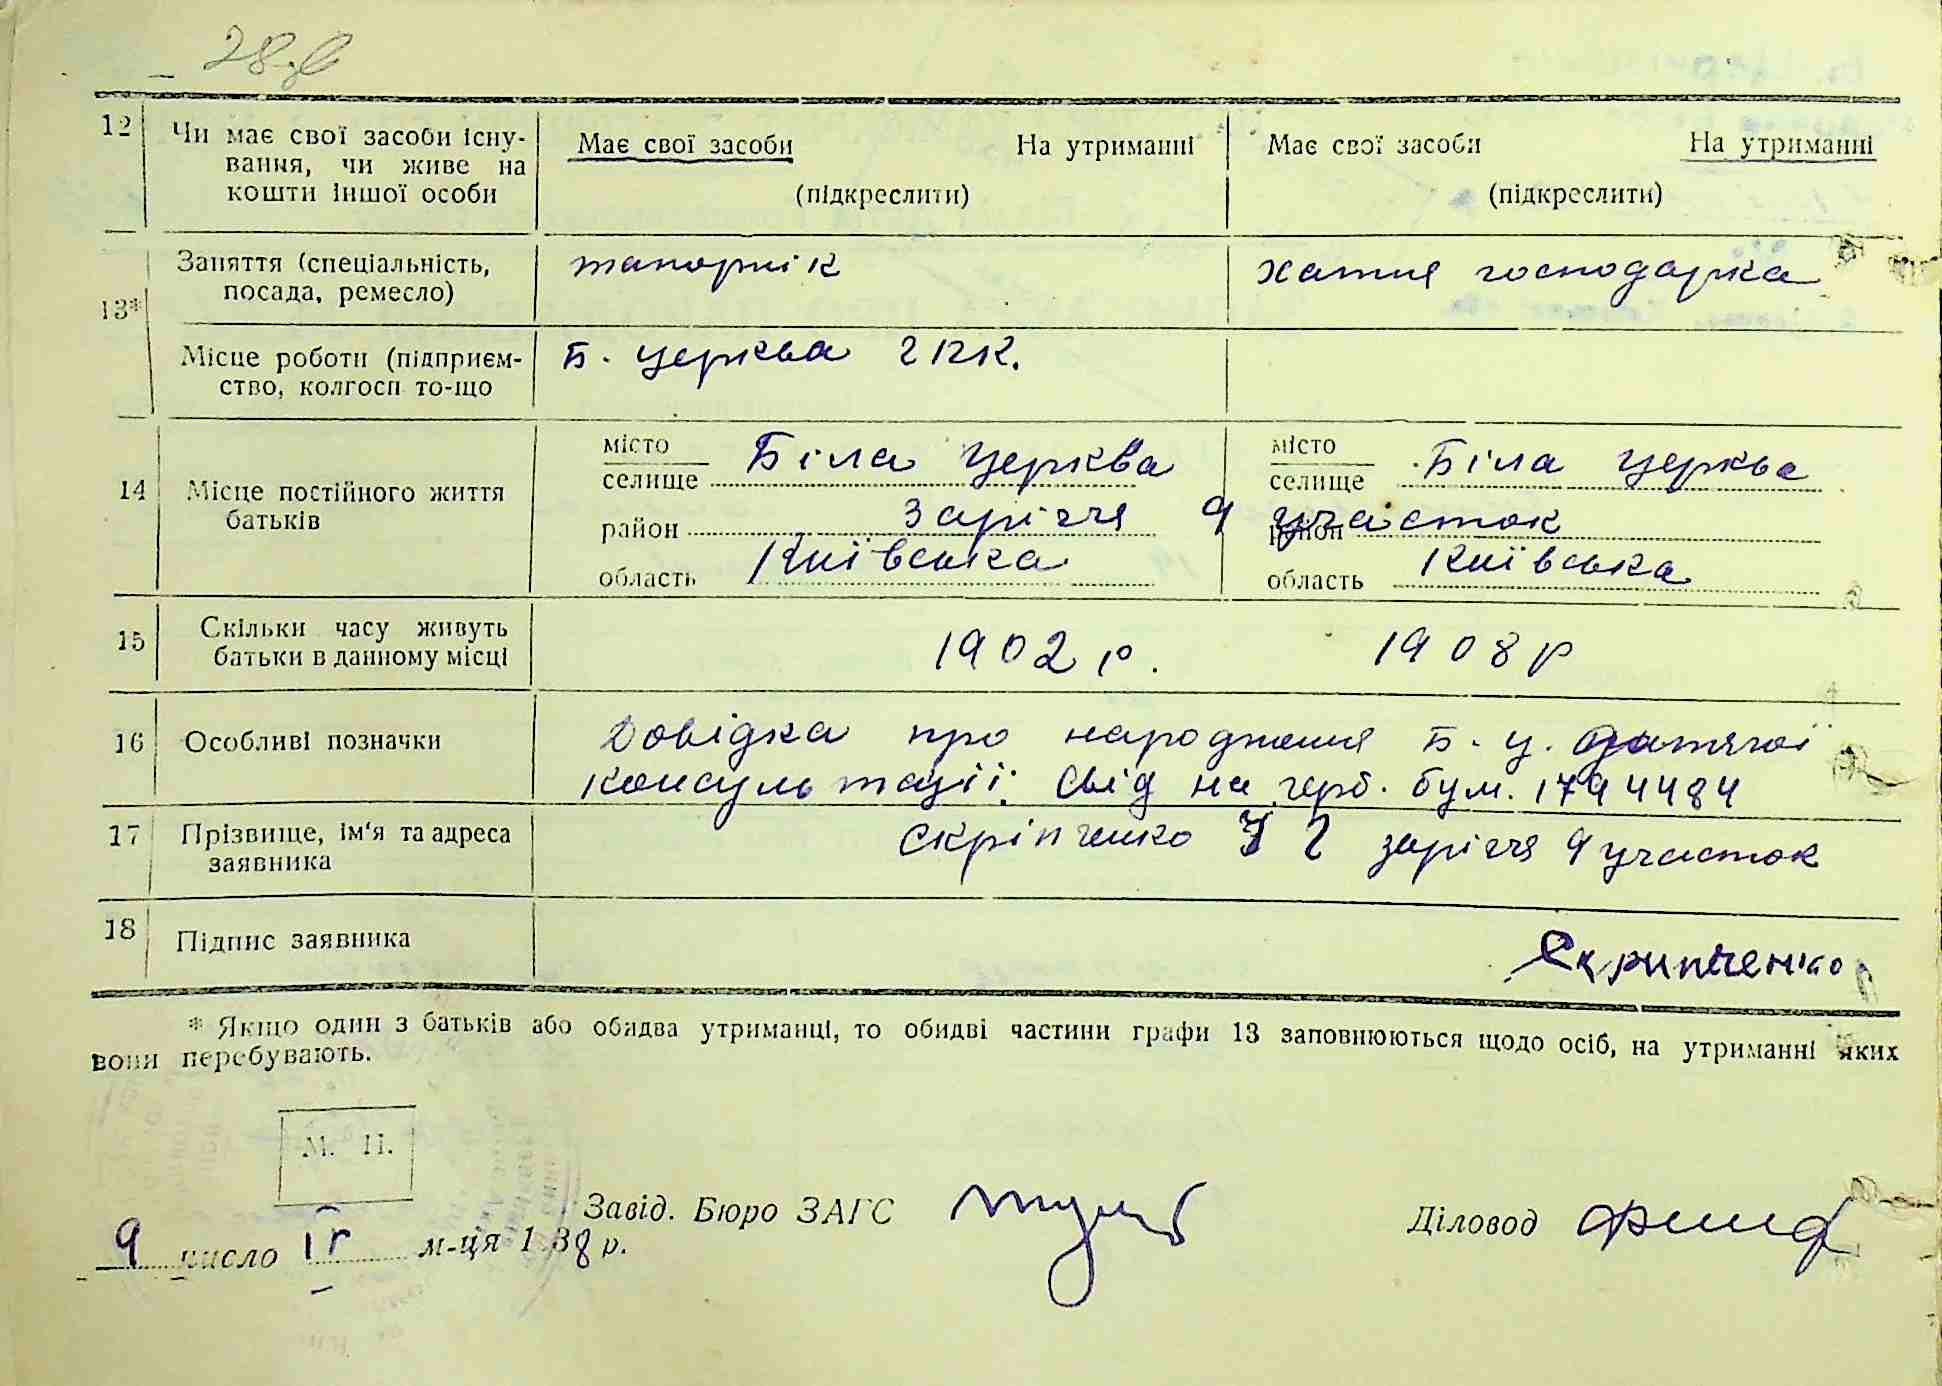 28
12 Чи має свої засоби існу- Має свої засоби На утриманні Має свої засоби На утриманні
вання, чи живе на
кошти іншої особи (підкреслити) (підкреслити)
Заняття (спеціальність, тапорнік хатня господарка
посада, ремесло)
13*
Місце роботи (підприєм- Б. Церква
ство, колгосп то-що
місто Біла Церква місто Біла Церква
селище селище
14 Місце постійного життя
батьків
район Заріччя 9 участок район
область Київська область Київська
15 Скільки часу живуть 1902 р. 1908 р
батьки в данному місці
16 Особливі позначки Довідка про народження Б. Ц. дитячої
консультації. Свід на герб. бум. 1794484
17 Прізвище, ім'я та адреса Скріпченко заріччя 9 участок
заявника
18 Підпис заявника Скрипченко
* Якщо один з батьків або обидва утриманці, то обидві частини графи 13 заповнюються щодо осіб, на утриманні яких
вони перебувають.
М. П.
Завід. Бюро ЗАГС Діловод
9 число IV м-ця 1938 р.